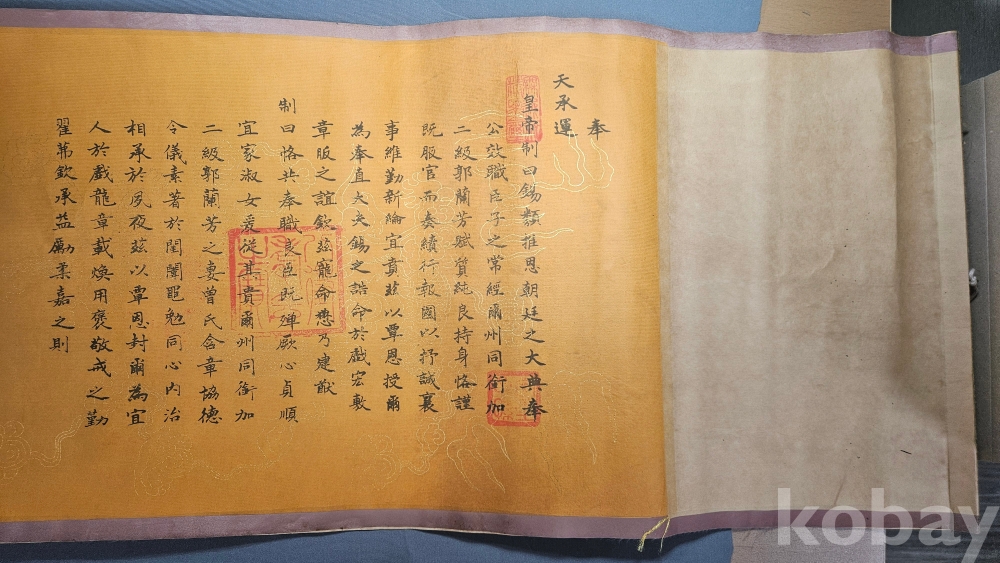 奉
天承運
皇帝制曰錫類推恩朝廷之大典奉
公效職臣子之常經爾州同銜加
二級郭蘭芳賦質純良持身恪謹
既服官而奏績行報國以抒誠襄
事維勤新綸宜賁茲以覃恩授爾
為奉直大夫錫之誥命於戲宏敷
章服之誼欽茲寵命懋乃建猷
制曰恪共奉職良臣既殫厥心貞順
宜家淑女爰從其貴爾州同銜加
二級郭蘭芳之妻曾氏含章協德
令儀素著於閨闈黽勉同心內治
相承於夙夜茲以覃恩封爾為宜
人於戲龍章載煥用褒敬戒之勤
翟茀欽承益勵柔嘉之則
kobay